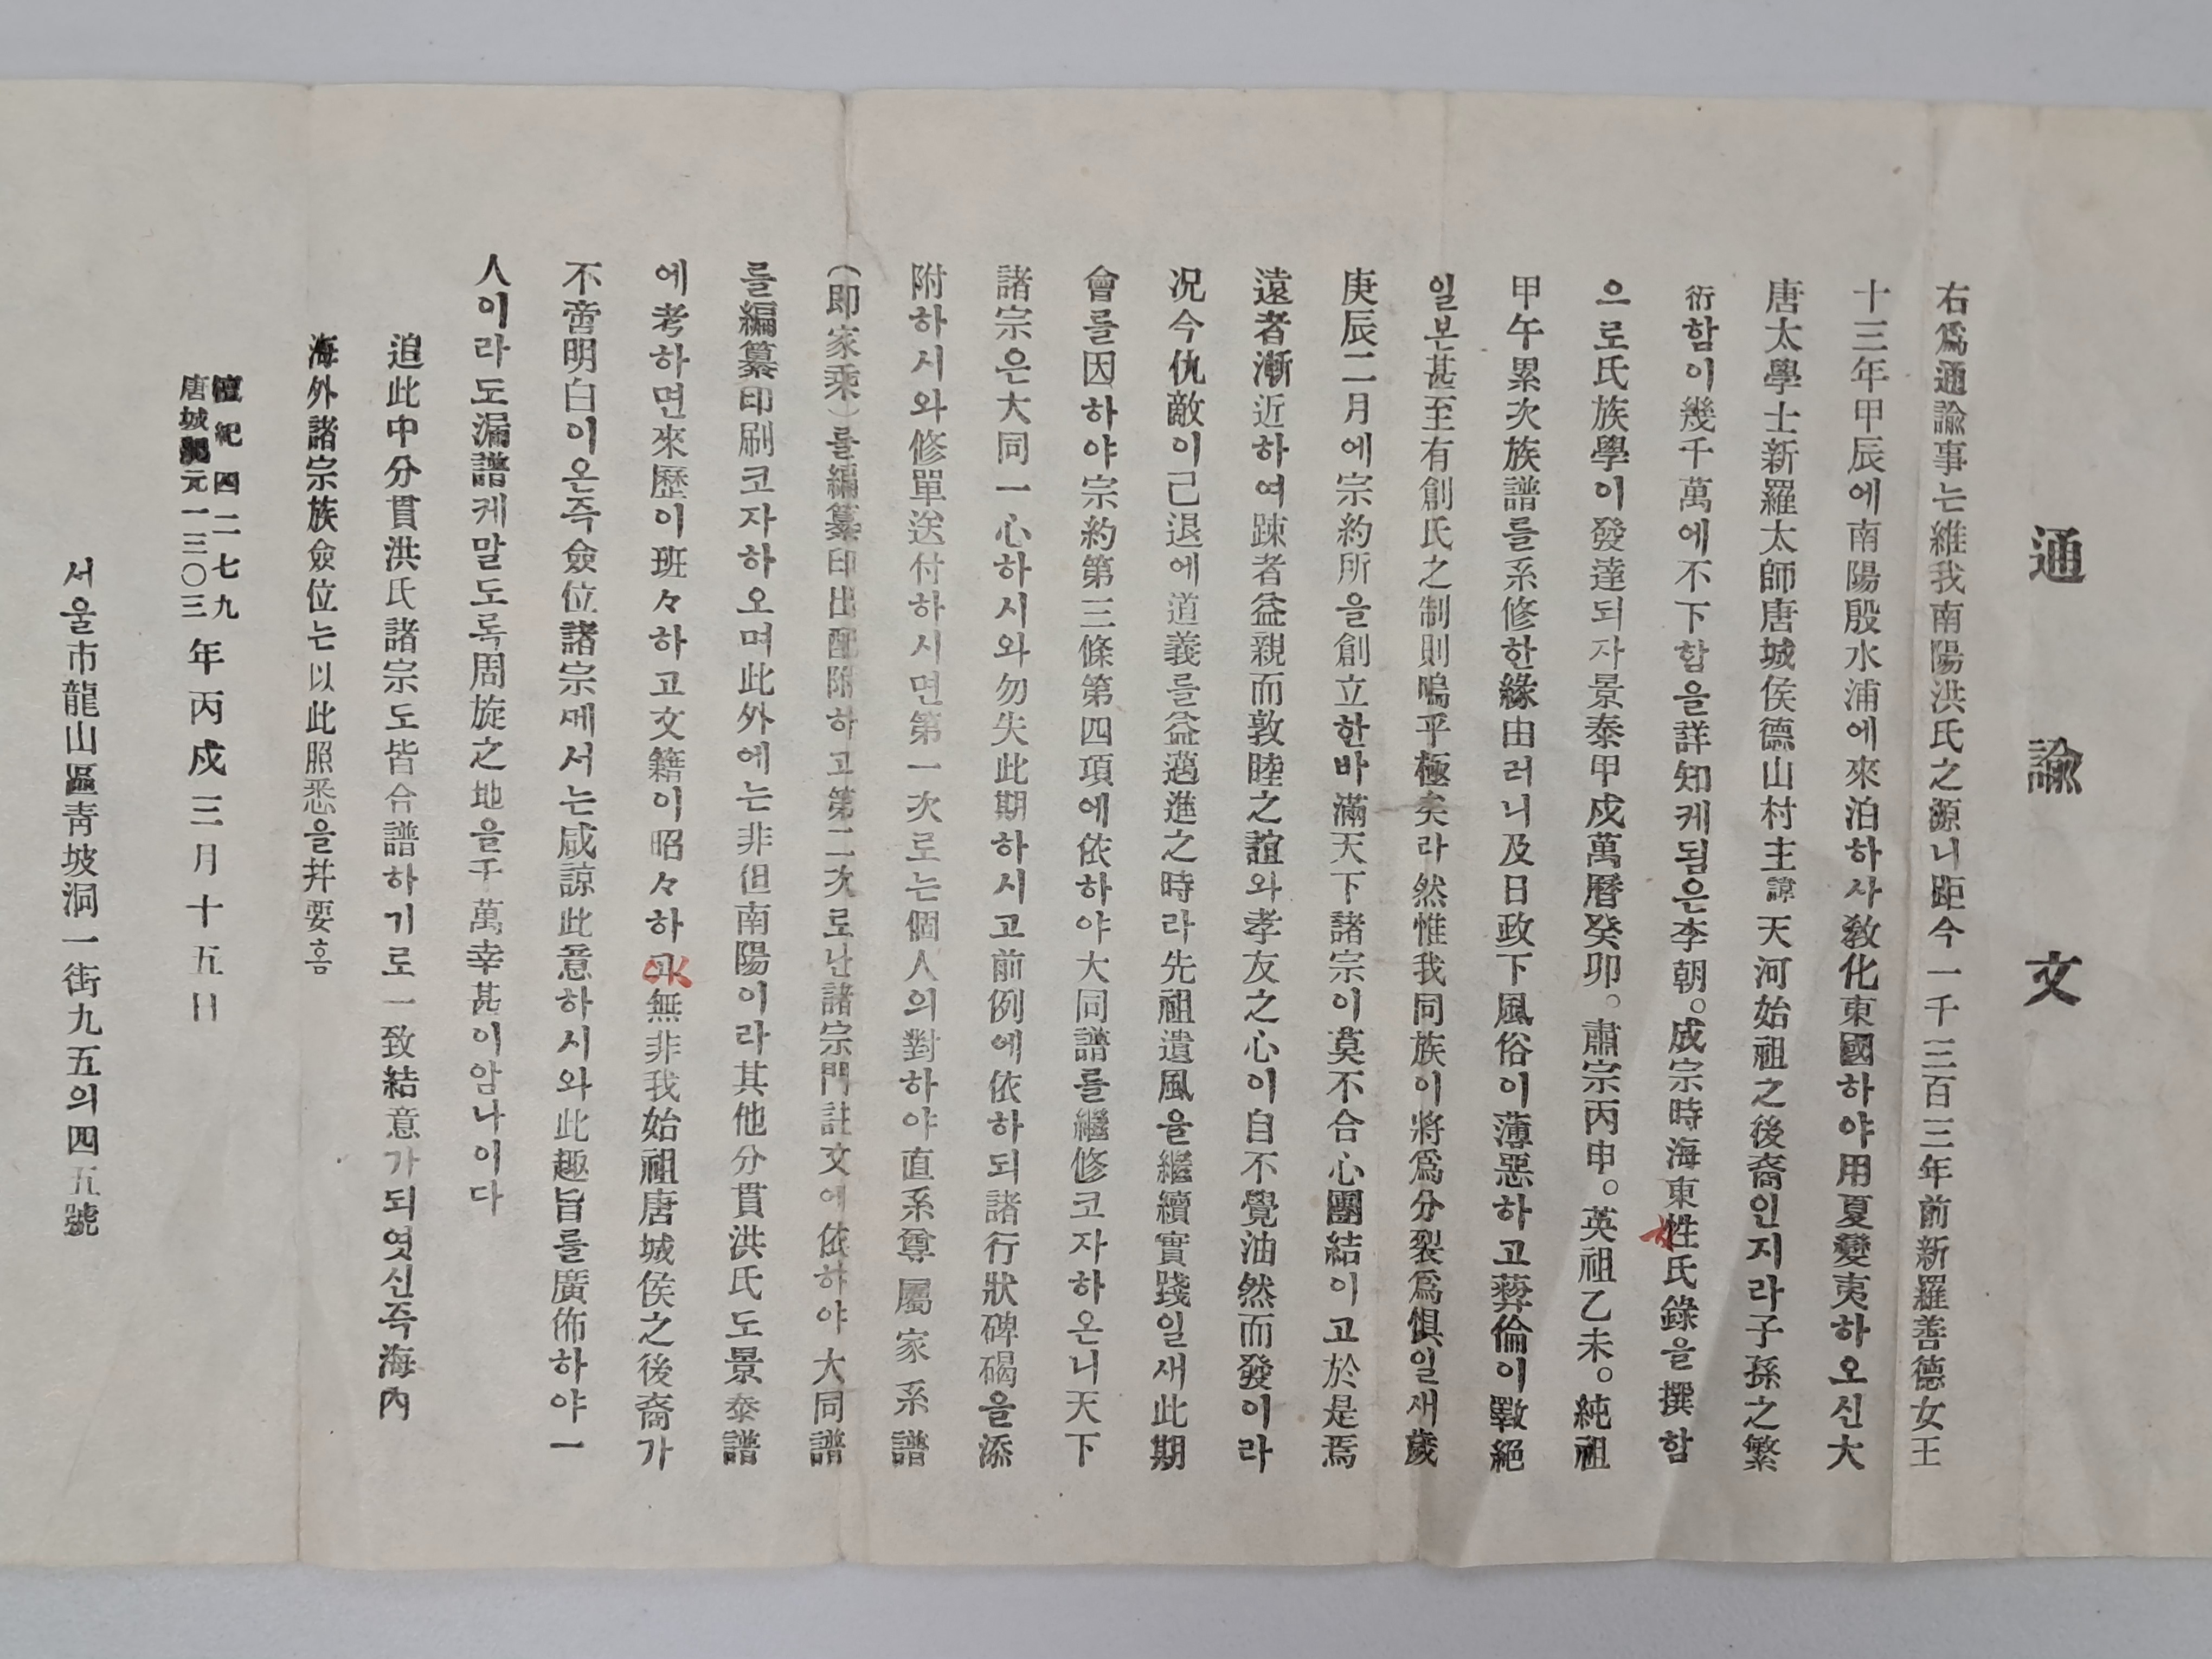 通諭文
右爲通諭事는維我南陽洪氏之源니距今一千三百三年前新羅善德女王
十三年甲辰에南陽殷水浦에來泊하사敎化東國하야用夏變夷하오신大
唐太學士新羅太師唐城侯德山村主諱天河始祖之後裔인지라子孫之繁
衍함이幾千萬에不下함을詳知케됨은李朝。成宗時海東姓氏錄을撰함
으로氏族學이發達되자景泰甲戍萬曆癸卯。肅宗丙申。英祖乙未。純祖
甲午累次族譜를系修한緣由러니及日政下風俗이薄惡하고彛倫이斁絕
일본甚至有創氏之制則嗚乎極矣라然惟我同族이將爲分裂爲惧일새歲
庚辰二月에宗約所을創立한바滿天下諸宗이莫不合心團結이고於是焉
遠者漸近하여踈者益親而敦睦之誼와孝友之心이自不覺油然而發이라
况今仇敵이己退에道義를益邁進之時라先祖遺風을繼續實踐일새此期
會를因하야宗約第三條第四項에依하야大同譜를繼修코자하온니天下
諸宗은大同一心하시와勿失此期하시고前例에依하되諸行狀碑碣을添
附하시와修單送付하시면第一次로는個人의對하야直系尊屬家系譜
(即家乘)를編纂印出配附하고第二次로난諸宗門註文에依하야大同譜
를編纂印刷코자하오며此外에는非但南陽이라其他分貫洪氏도景泰譜
에考하면來歷이班々하고文籍이昭々하고無非我始祖唐城侯之後裔가
不啻明白이온즉僉位諸宗께서는咸諒此意하시와此趣旨를廣佈하야一
人이라도漏譜케말도록周旋之地을千萬幸甚이암나이다
追此中分貫洪氏諸宗도皆合譜하기로一致結意가되엿신즉海內
海外諸宗族僉位는以此照悉을幷要홈
檀紀四二七九
唐城紀元一三〇三年丙戍三月十五日
서울市龍山區靑坡洞一街九五의四五號